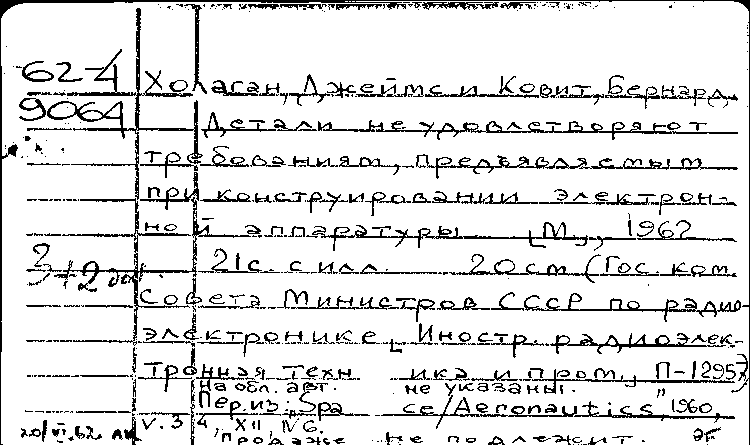 62-4
9064
Холаган, Джеймс и Ковит, Бернард.
Детали не удовлетворяют
требованиям, предъявляемым
при конструировании электрон-
ной аппаратуры. [М.], 1962
21 с. с илл. 20 см (Гос. ком.
3+2 доп.
Совета Министров СССР по радио-
электронике. Иностр. радиоэлек-
тронная техника и пром., П-12957)
На обл. авт. не указаны.
Пер. из: "Space/Aeronautics", 1960,
v. 34, XII, № 6.
Продаже не подлежит.
20/VI.62